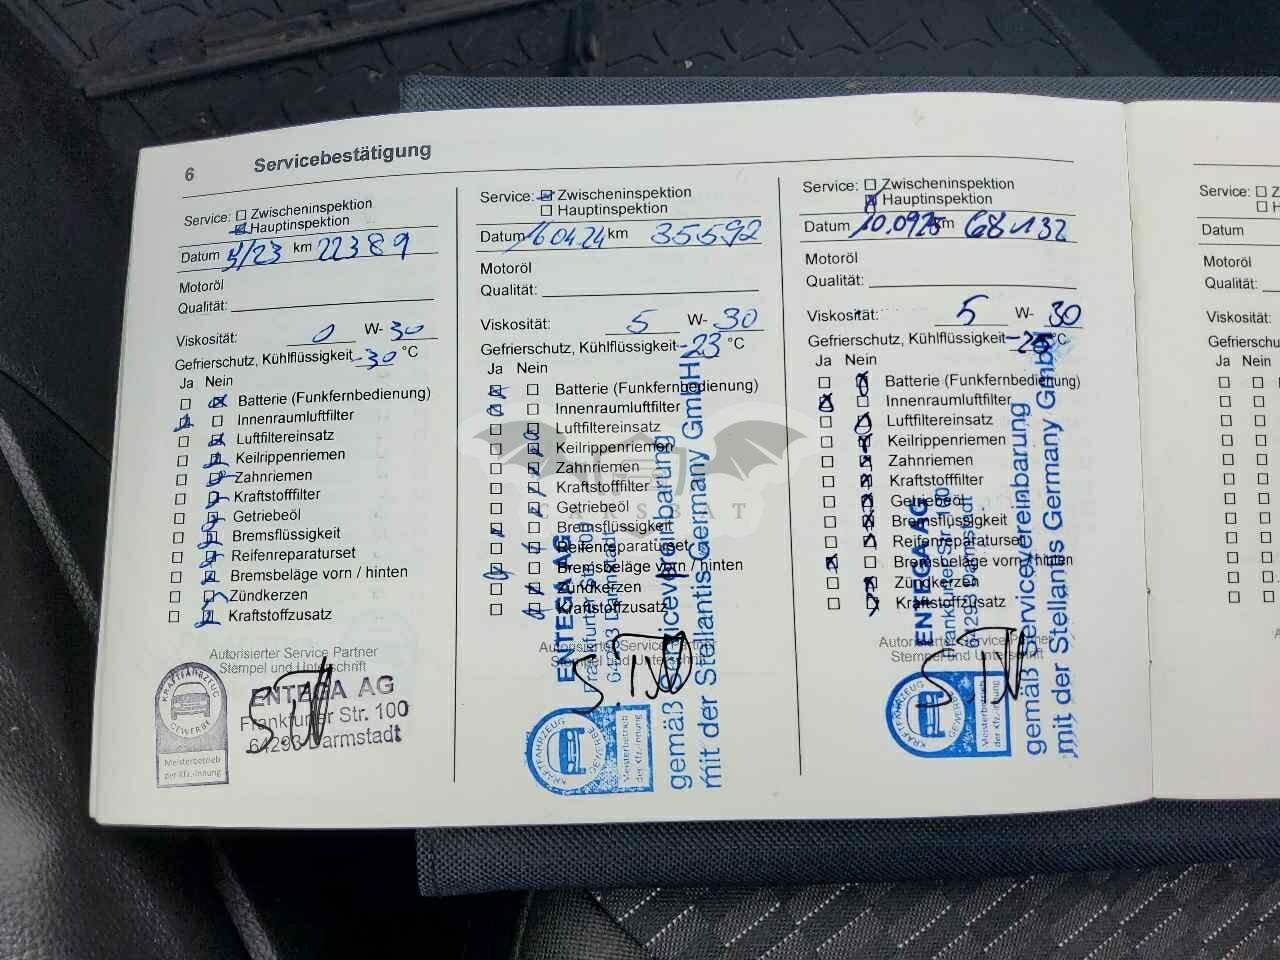 6 Servicebestätigung
Service: Zwischeninspektion
Hauptinspektion
Datum 5/23 km 22389
Motoröl
Qualität:
Viskosität: 0 W- 30
Gefrierschutz, Kühlflüssigkeit -30 °C
Ja Nein
Batterie (Funkfernbedienung)
Innenraumluftfilter
Luftfiltereinsatz
Keilrippenriemen
Zahnriemen
Kraftstofffilter
Getriebeöl
Bremsflüssigkeit
Reifenreparaturset
Bremsbeläge vorn / hinten
Zündkerzen
Kraftstoffzusatz
Autorisierter Service Partner
Stempel und Unterschrift
KRAFTFAHRZEUG
GEWERBE
Meisterbetrieb
der Kfz.-Innung
ENTEGA AG
Frankfurter Str. 100
64293 Darmstadt
Service: Zwischeninspektion
Hauptinspektion
Datum 16.04.24 km 35592
Motoröl
Qualität:
Viskosität: 5 W- 30
Gefrierschutz, Kühlflüssigkeit -23 °C
Ja Nein
Batterie (Funkfernbedienung)
Innenraumluftfilter
Luftfiltereinsatz
Keilrippenriemen
Zahnriemen
Kraftstofffilter
Getriebeöl
Bremsflüssigkeit
Reifenreparaturset
Bremsbeläge vorn / hinten
Zündkerzen
Kraftstoffzusatz
Autorisierter Service Partner
Stempel und Unterschrift
KRAFTFAHRZEUG
GEWERBE
Meisterbetrieb
der Kfz.-Innung
ENTEGA AG
Frankfurter Str. 100
64293 Darmstadt
gemäß Servicevereinbarung
mit der Stellantis Germany GmbH
Service: Zwischeninspektion
Hauptinspektion
Datum 10.09.25 km 68132
Motoröl
Qualität:
Viskosität: 5 W- 30
Gefrierschutz, Kühlflüssigkeit °C
Ja Nein
Batterie (Funkfernbedienung)
Innenraumluftfilter
Luftfiltereinsatz
Keilrippenriemen
Zahnriemen
Kraftstofffilter
Getriebeöl
Bremsflüssigkeit
Reifenreparaturset
Bremsbeläge vorn / hinten
Zündkerzen
Kraftstoffzusatz
Autorisierter Service Partner
Stempel und Unterschrift
KRAFTFAHRZEUG
GEWERBE
Meisterbetrieb
der Kfz.-Innung
ENTEGA AG
Frankfurter Str. 100
64293 Darmstadt
gemäß Servicevereinbarung
mit der Stellantis Germany GmbH
Service: Z
H
Datum
Motoröl
Qualität:
Viskosität:
Gefrierschu
Ja Nein
CARSBAT